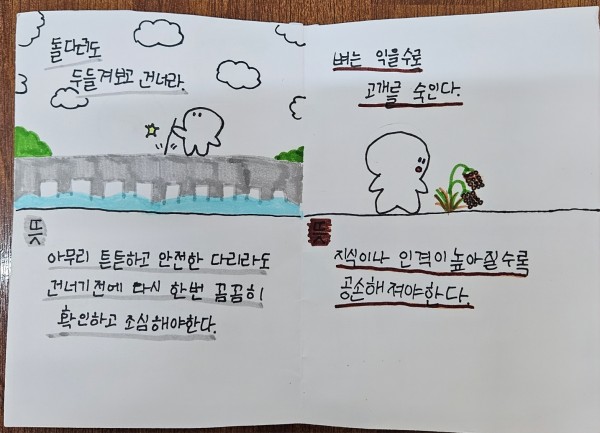 돌다리도
두들겨보고 건너라.
뜻
아무리 튼튼하고 안전한 다리라도
건너기전에 다시 한번 꼼꼼히
확인하고 조심해야한다.
벼는 익을수록
고개를 숙인다.
뜻
지식이나 인격이 높아질수록
공손해져야한다.